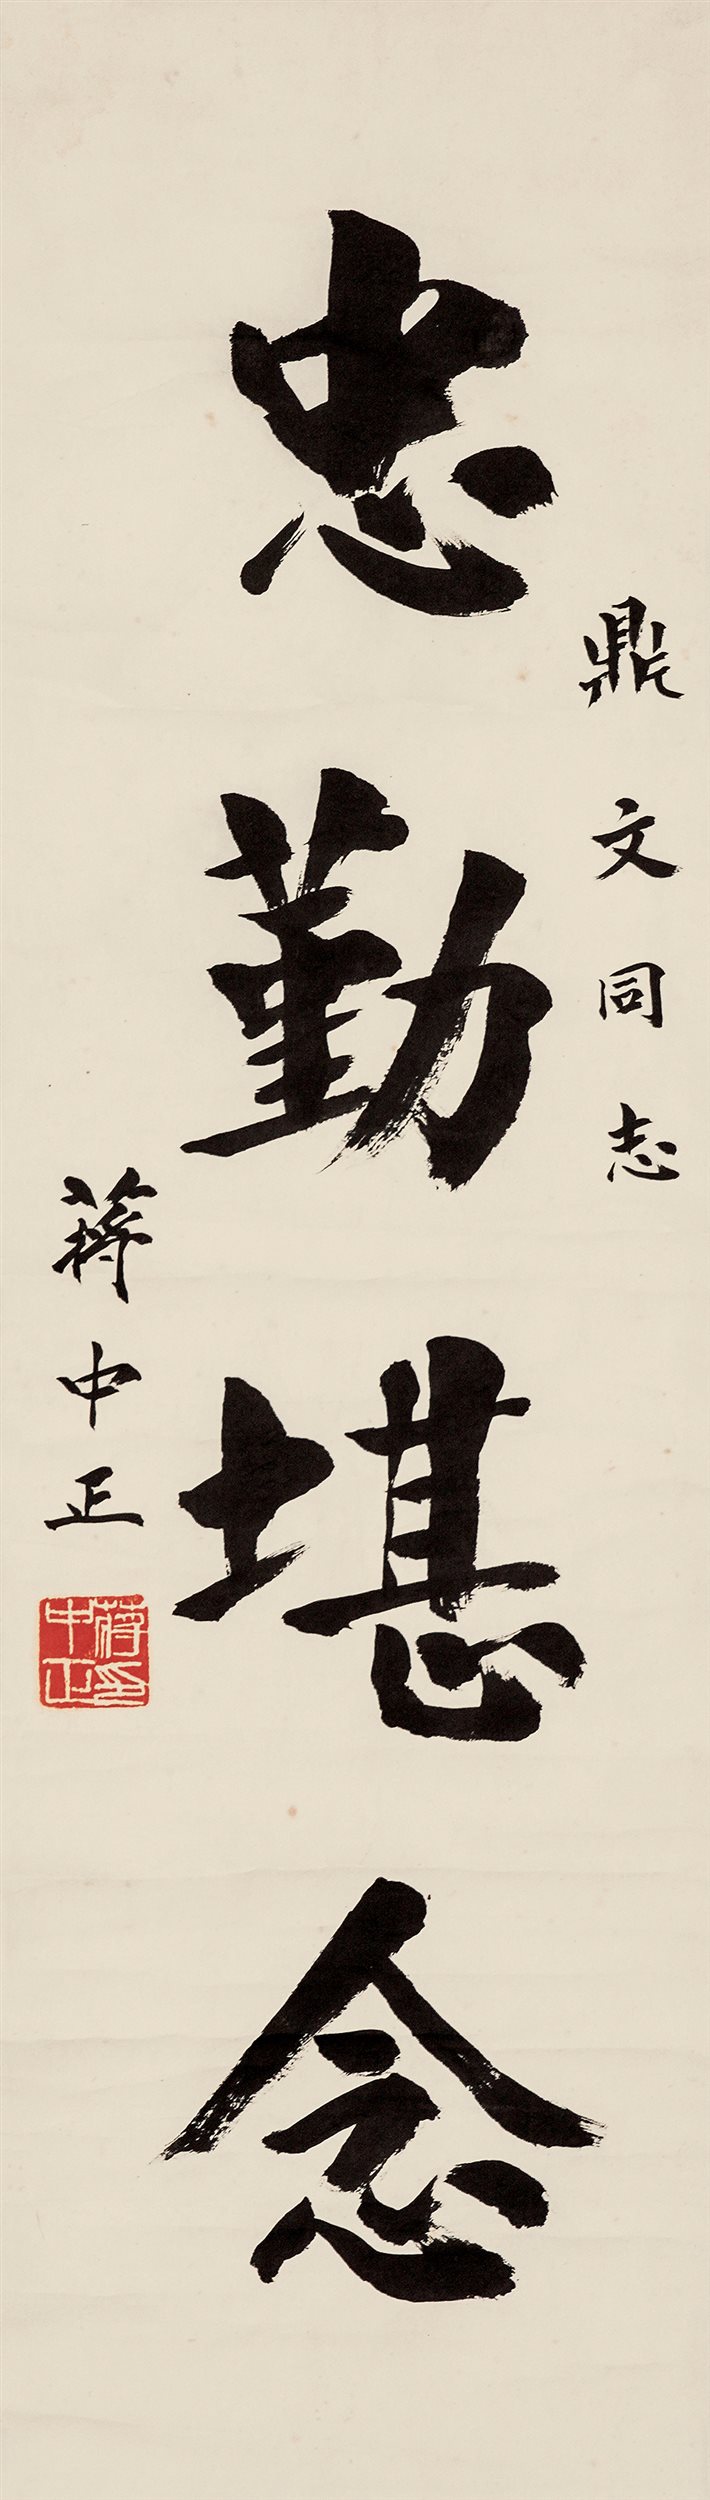 鼎文同志
忠勤堪念
蔣中正
蔣中正印